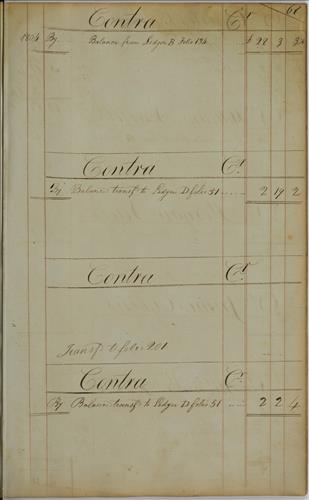 60
Contra Cr
1804 By Balance from Ledger B Folio 134 £ 22 3 3¼
Contra Cr
By Balance transf.d to Ledger D folio 51 2 19 2
Contra Cr
Transf.d to folio 201
Contra Cr
By Balance transf.d to Ledger D folio 51 2 2 4